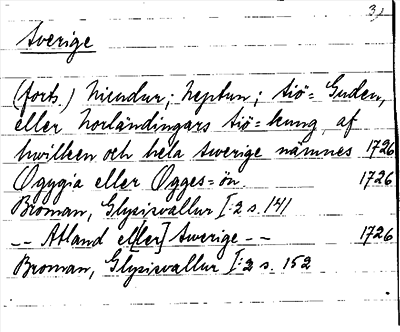 3)
Sverige
(forts.) Niundur; Neptun; Siö=Guden,
eller Norländingars Siö=kung, af
hwilken och hela Swerige nämnes 1726
Ogygia eller Ogges=ön. 1726
Broman, Glysisvallur I:2 s. 141
-- Atland el[ler] Swerige -- 1726
Broman, Glysisvallur I:2 s. 152